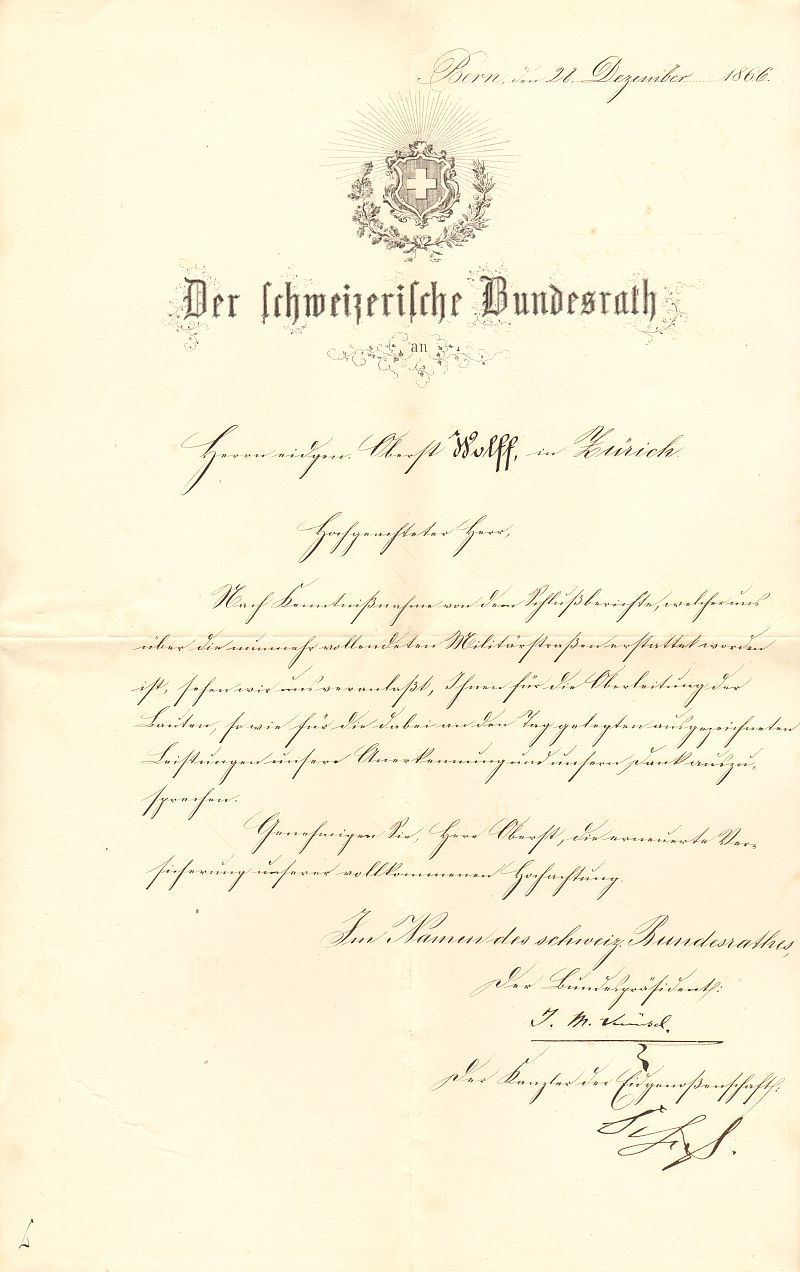 Bern, den 28. Dezember 1866.
Der schweizerische Bundesrath
an
Herrn eidgen. Oberst Wolff, in Zürich.
Hochgeachteter Herr,
Nach Kenntnißnahme von dem Schlußberichte, welcher uns
über die nunmehr vollendeten Militärstraßen erstattet worden
ist, sehen wir uns veranlaßt, Ihnen für die Oberleitung der
Bauten, so wie für die dabei an den Tag gelegten ausgezeichneten
Leistungen unsere Anerkennung und unsern Dank auszu-
sprechen.
Genehmigen Sie, Herr Oberst, die erneuerte Ver-
sicherung unserer vollkommenen Hochachtung.
Im Namen des schweiz. Bundesrathes,
Der Bundespräsident:
J. M. Knüsel.
Der Kanzler der Eidgenoßenschaft:
Schieß.